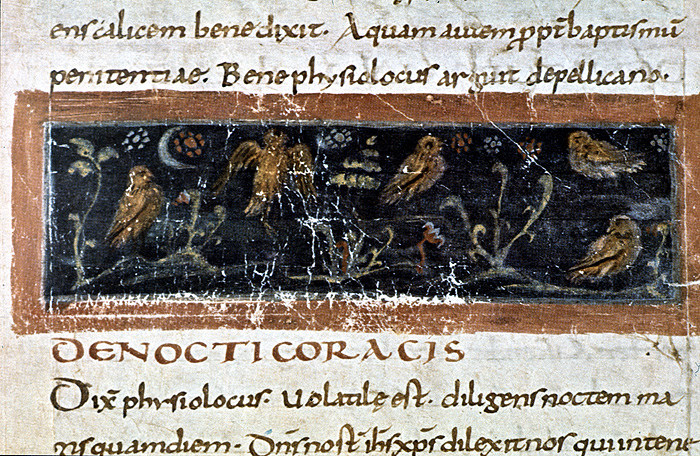 ens calicem benedixit. Aquam autem ꝓpt̄ baptismū
penitentiae. Bene physiolocus arguit depellicano.
DENOCTICORACIS
Dix̄ physiolocus. Uolatilę est. diligens noctem ma
gis quam diem. Dn̄s nost̄ ihs xp̄s dilexit nos qui in tene